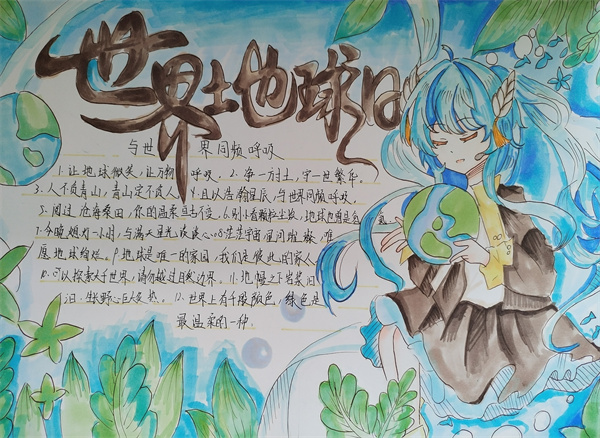 世界地球日
与世界同频呼吸
1.让地球微笑,让万物呼吸。2.争一方土,守一世繁华。
3.人不负青山,青山定不负人。4.且以浩瀚星辰,与世界同频呼吸。
5.阅过沧海桑田,你的温柔亘古不变。6.别小看颗粒尘埃,地球也有自
7.今晚熄灯一小时,与满天星光谈谈心。8.茫茫宇宙星河璀璨,唯
愿地球绚烂。9.地球是唯一的家园,我们是彼此的家人
10.可以探索大千世界,请勿越过自然边界。11.地幔之下岩浆
汩,野心
12.世界上有千般颜色,绿色是
最温柔的一种。